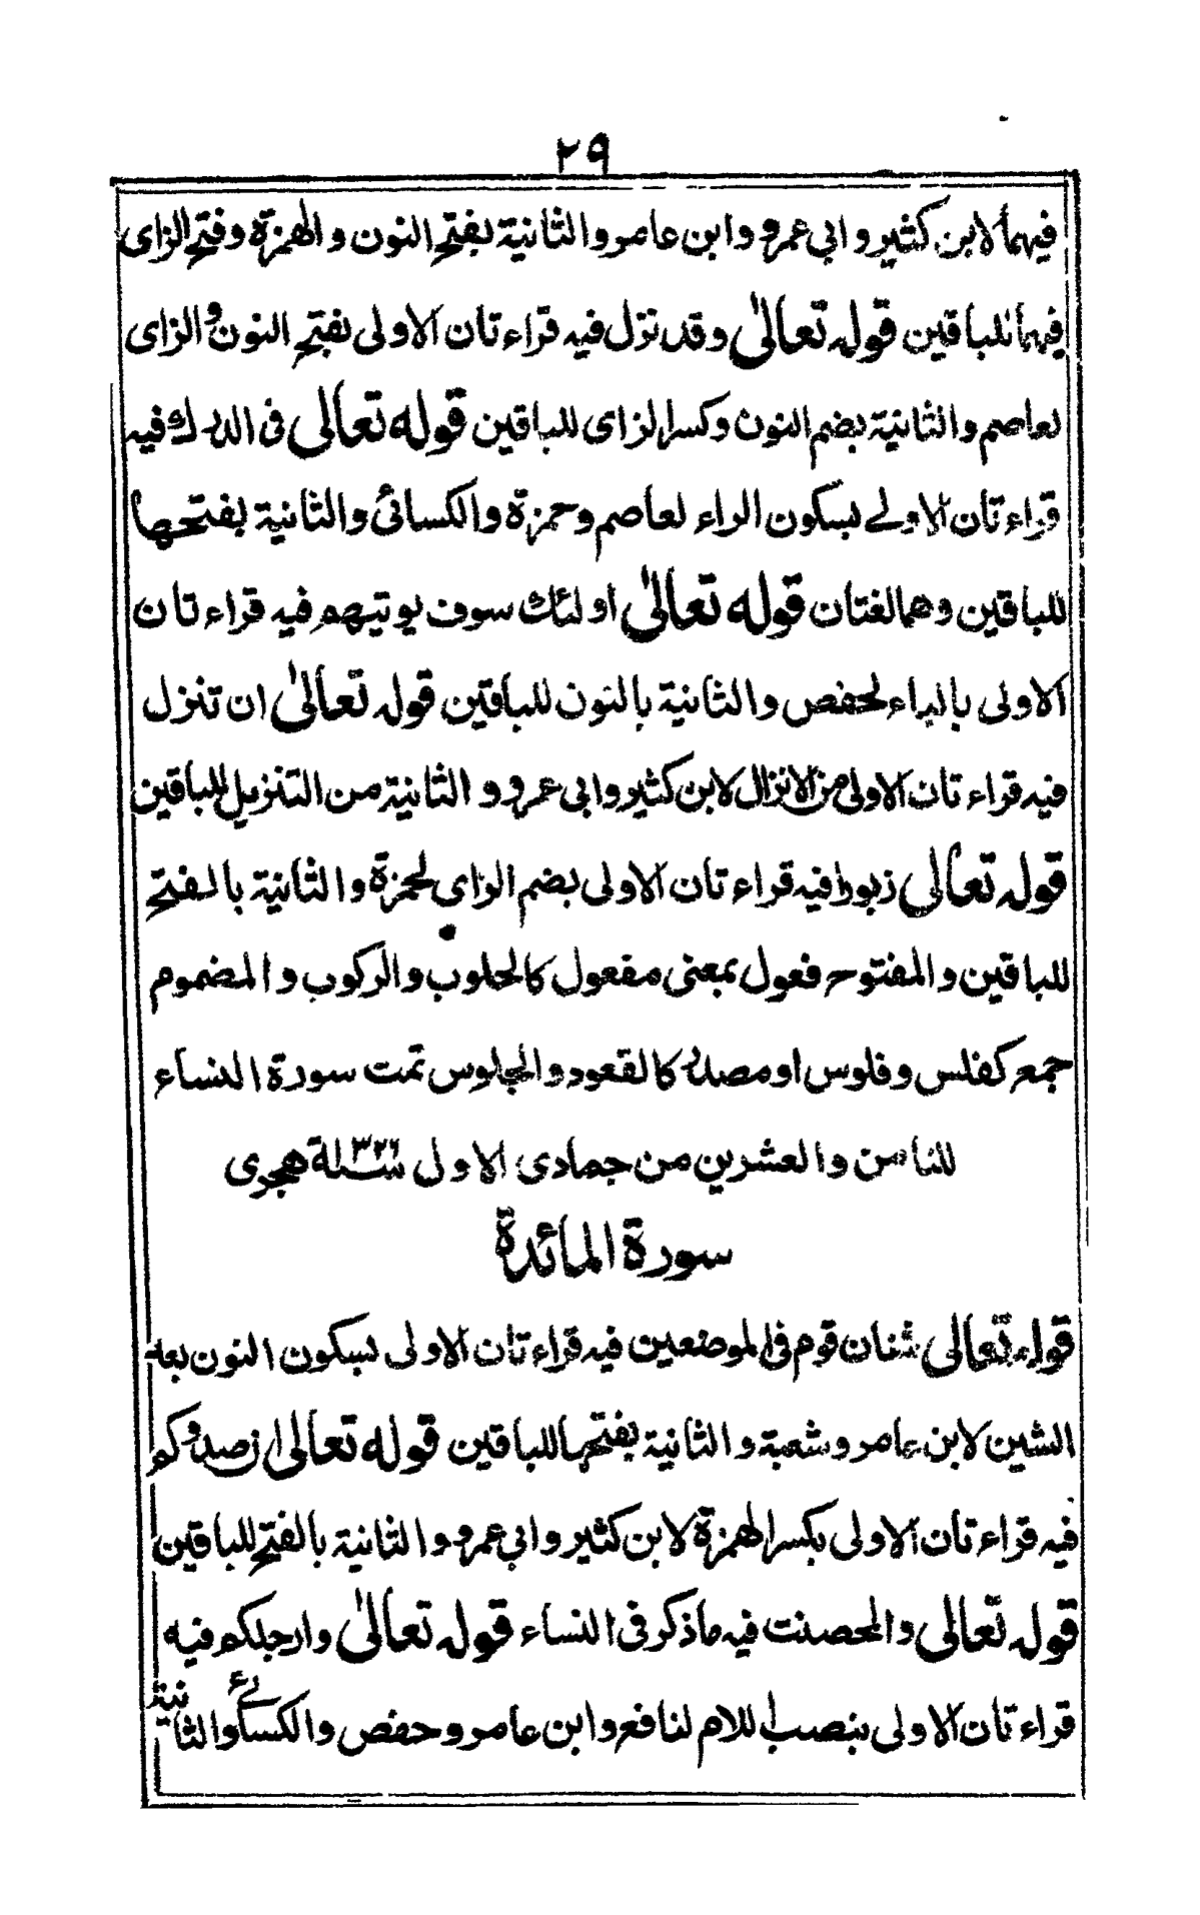 ٢٩
فيهما لابن كثير و ابي عمرو و ابن عامر و الثانية بفتح النون و الهمزة و فتح الزاى
فيهما للباقين قوله تعالىٰ و قد نزل فيه قراء تان الاولى بفتح النون و الزاى
لعاصم و الثانية بضم النون و كسر الزاى للباقين قوله تعالى فى الدرك فيه
قراء تان الاولے بسكون الراء لعاصم و حمزة و الكسائى و الثانية بفتحها
للباقين و هما لغتان قوله تعالىٰ اولئك سوف يوتيهم فيه قراء تان
الاولى بالياء لحفص و الثانية بالنون للباقين قوله تعالىٰ ان تنزل
فيه قراء تان الاولى من الانزال لابن كثير و ابى عمرو و الثانية من التنزيل للباقين
قوله تعالى زبورا فيه قراء تان الاولى بضم الزاى لحمزة و الثانية بالفتح
للباقين و المفتوح فعول بمعنى مفعول كالحلوب و الركوب و المضموم
جمع كفلس و فلوس او مصدر كالقعود و الجلوس تمت سورة النساء
للثامن و العشرين من جمادى الاول سنة هجرى
سورة المائدة
قوله تعالى شنان قوم فى الموضعين فيه قراء تان الاولى بسكون النون بعد
الشين لابن عامر و شعبة و الثانية بفتحها للباقين قوله تعالى ان صدوكم
فيه قراء تان الاولى بكسر الهمزة لابن كثير و ابي عمرو و الثانية بالفتح للباقين
قوله تعالى و المحصنت فيه ما ذكر فى النساء قوله تعالىٰ و ارجلكم فيه
قراء تان الاولى بنصب اللام لنافع و ابن عامر و حفص و الكسائے و الثانية